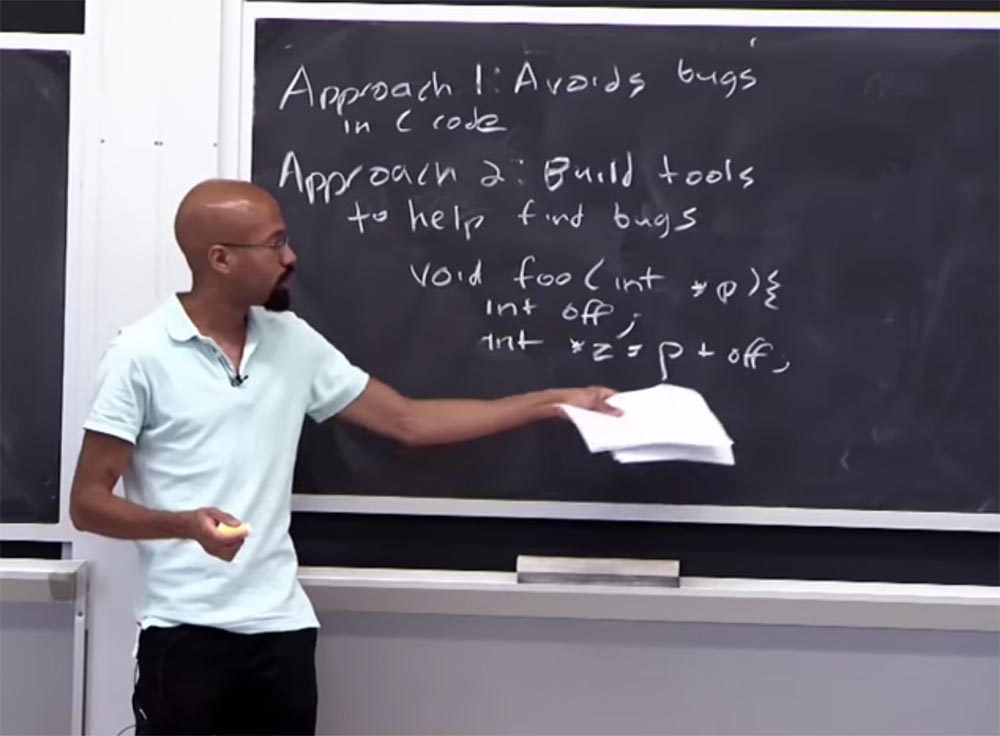 Approach 1: Avoids bugs
in C code
Approach 2: Build tools
to help find bugs
void foo(int *p){
int off;
int *z = p + off;